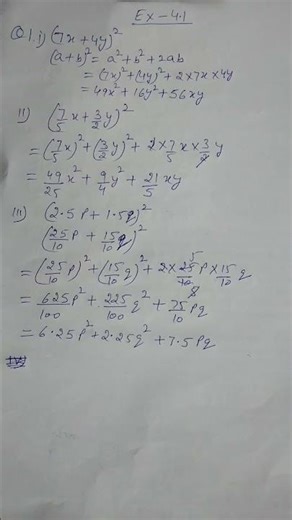 Ex-4.1
Q1. i) (7x+4y)²
(a+b)² = a²+b²+2ab
= (7x)²+(4y)²+2×7x×4y
= 49x²+16y²+56xy
II) (7/5 x + 3/2 y)²
= (7/5 x)²+(3/2 y)²+2×7/5 x×3/2 y
= 49/25 x²+9/4 y²+21/5 xy
III) (2.5P+1.5q)²
(25/10 P + 15/10 q)²
= (25/10 P)²+(15/10 q)²+2×25/10 P×15/10 q
= 625/100 P²+225/100 q²+75/10 Pq
= 6.25P²+2.25q²+7.5Pq